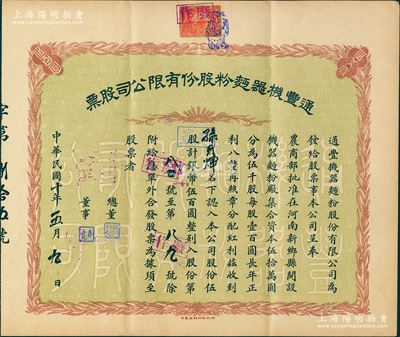 上海陽明拍賣
通豐機器麵粉股份有限公司股票
通豐機器麵粉股份有限公司為
發給股票事本公司呈奉
農商部批准在河南新鄉縣開設
機器麵粉廠集合資本伍拾萬圓
分為伍千股每股壹百圓長年正
利八釐再照章分配紅利茲收到
名下認入本公司股份伍
股計銀幣伍百圓整列入股份第
號至第 號除
附給息單外合發股票為據須至
股票者
總董
董事
中華民國十年五月九日
字第 捌拾五號